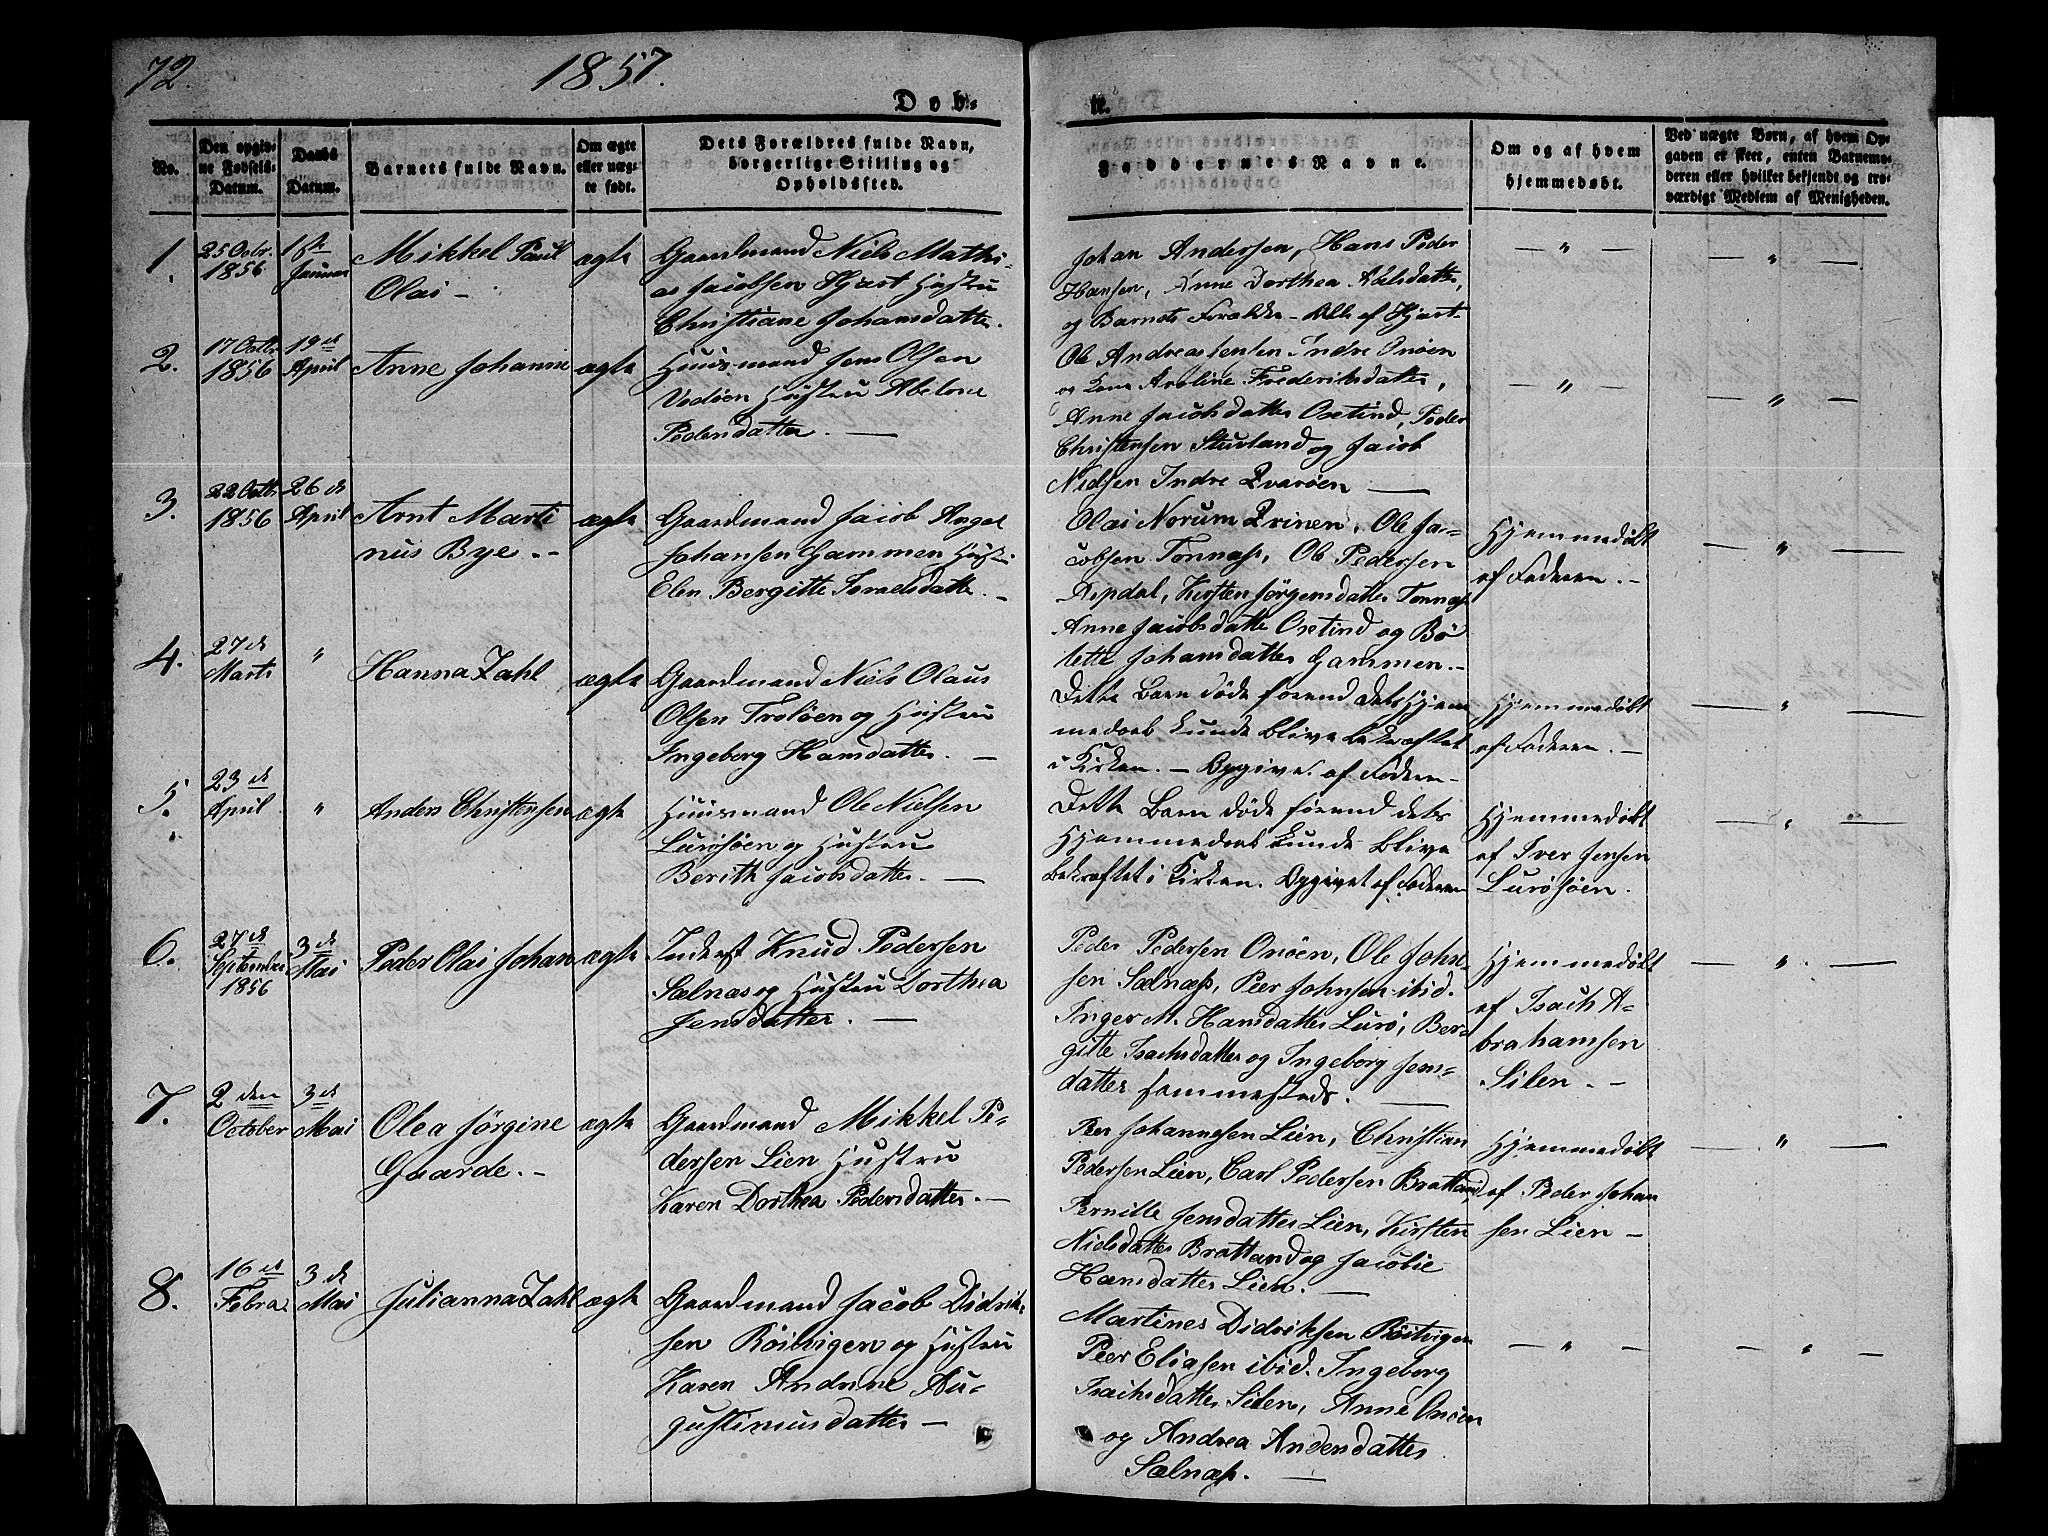 72.
1857.
Døb-
te.
No.
Den opgiv-
ne Fødsels-
Datum.
Daabs
Datum.
Barnets fulde Navn.
Om ægte
eller uæg-
te født.
Dets Forældres fulde Navn,
borgerlige Stilling og
Opholdssted.
Faddernes Navne.
Om og af hvem
hjemmedøbt.
Ved uægte Børn, af hvem Op-
gaven er skeet, enten Barnemo-
deren eller hvilket bekjendt og tro-
værdigt Medlem af Menigheden.
1.
25 Octbr.
1856
1ste
Januar
Mikkel Paul
Olai -
ægte
Gaardmand Niels Mathi-
as Jacobsen Hjart Hustru
Christiane Johansdatter.
Johan Andersen, Hans Peder
Hansen, Anne Dorthea Axelsdatter,
og Barnets Forældre - Alle af Hjart-
— " —
— " —
2.
17 Octbr.
1856
19de
April
Anne Johanne
ægte
Huusmand Jens Olsen
Vedøen Hustru Abelone
Pedersdatter. —
Ole Andreas Jentsen Indre Onøen
og Kone Aroline Frederiksdatter,
Anne Jacobsdatter Oxtind, Peder
Christensen Stuvland og Jacob
Nielsen Indre Qvarøen —
— " —
— " —
3.
22 Octbr.
1856
26de
April
Arnt Marti
nus Bye. -
ægte
Gaardmand Jacob Angel
Johansen Gammen Hustru
Elen Bergitte Israelsdatter. -
Olai Norum Qvinen, Ole Ja-
cobsen Tonnæs, Ole Pedersen
Aspdal, Kirsten Jørgensdatter Tonnæs
Anne Jacobsdatter Oxtind og Bø
lette Johansdatter Gammen. -
Hjemmedøbt
af Faderen. -
— " —
4.
27de
Marts
"
Hanna Zahl
ægte
Gaardmand Niels Olaus
Olsen Troløen og Hustru
Ingeborg Hansdatter. —
Dette Barn døde førend dets Hjem
medaab kunde blive bekræftet
i Kirken. - Opgivet af Faderen -
Hjemmedøbt
af Faderen. -
— " —
5.
23de
April
"
Anders Christensen
ægte
Huusmand Ole Nielsen
Lurøsøen og Hustru
Berith Jacobsdatter. —
Dette Barn døde førend dets
Hjemmedaab kunde blive
bekræftet i Kirken. Opgivet af Faderen
Hjemmedøbt
af Iver Jensen
Lurøsøen.
— " —
6.
27de
September
1856
3de
Mai
Peder Olai Johan
ægte
Inderst Knud Pedersen
Sælnæs og Hustru Dorthea
Jensdatter. —
Peder Pedersen Onøen, Ole John-
sen Sælnæs, Peer Johnsen ibid.
Inger M. Hansdatter Lurø, Ber-
gitte Isachsdatter og Ingeborg Jens-
datter sammesteds. —
Hjemmedøbt
af Isach A-
brahamsen
Silen. -
— " —
7.
2den
October
3de
Mai
Olea Jørgine
Gaarde. -
ægte
Gaardmand Mikkel Pe-
dersen Lien Hustru
Karen Dorthea Pedersdatter. -
Peer Johannesen Lien, Christian
Pedersen Lien, Carl Pedersen Bratland,
Pernille Jensdatter Lien, Kirsten
Nielsdatter Bratland og Jacobie
Hansdatter Lien. —
Hjemmedøbt
af Peder Johan
sen Lien -
— " —
8.
16de
Febra.
3de
Mai
Julianna Zahl
ægte
Gaardmand Jacob Didrik-
sen Röitvigen og Hustru
Karen Andrine Au-
gustinusdatter -
Martines Didriksen Röitvigen
Peer Eliasen ibid. Ingeborg
Isachsdatter Silen, Anne Onøen
og Andrea Andersdatter
Sælnæs. —
— " —
— " —